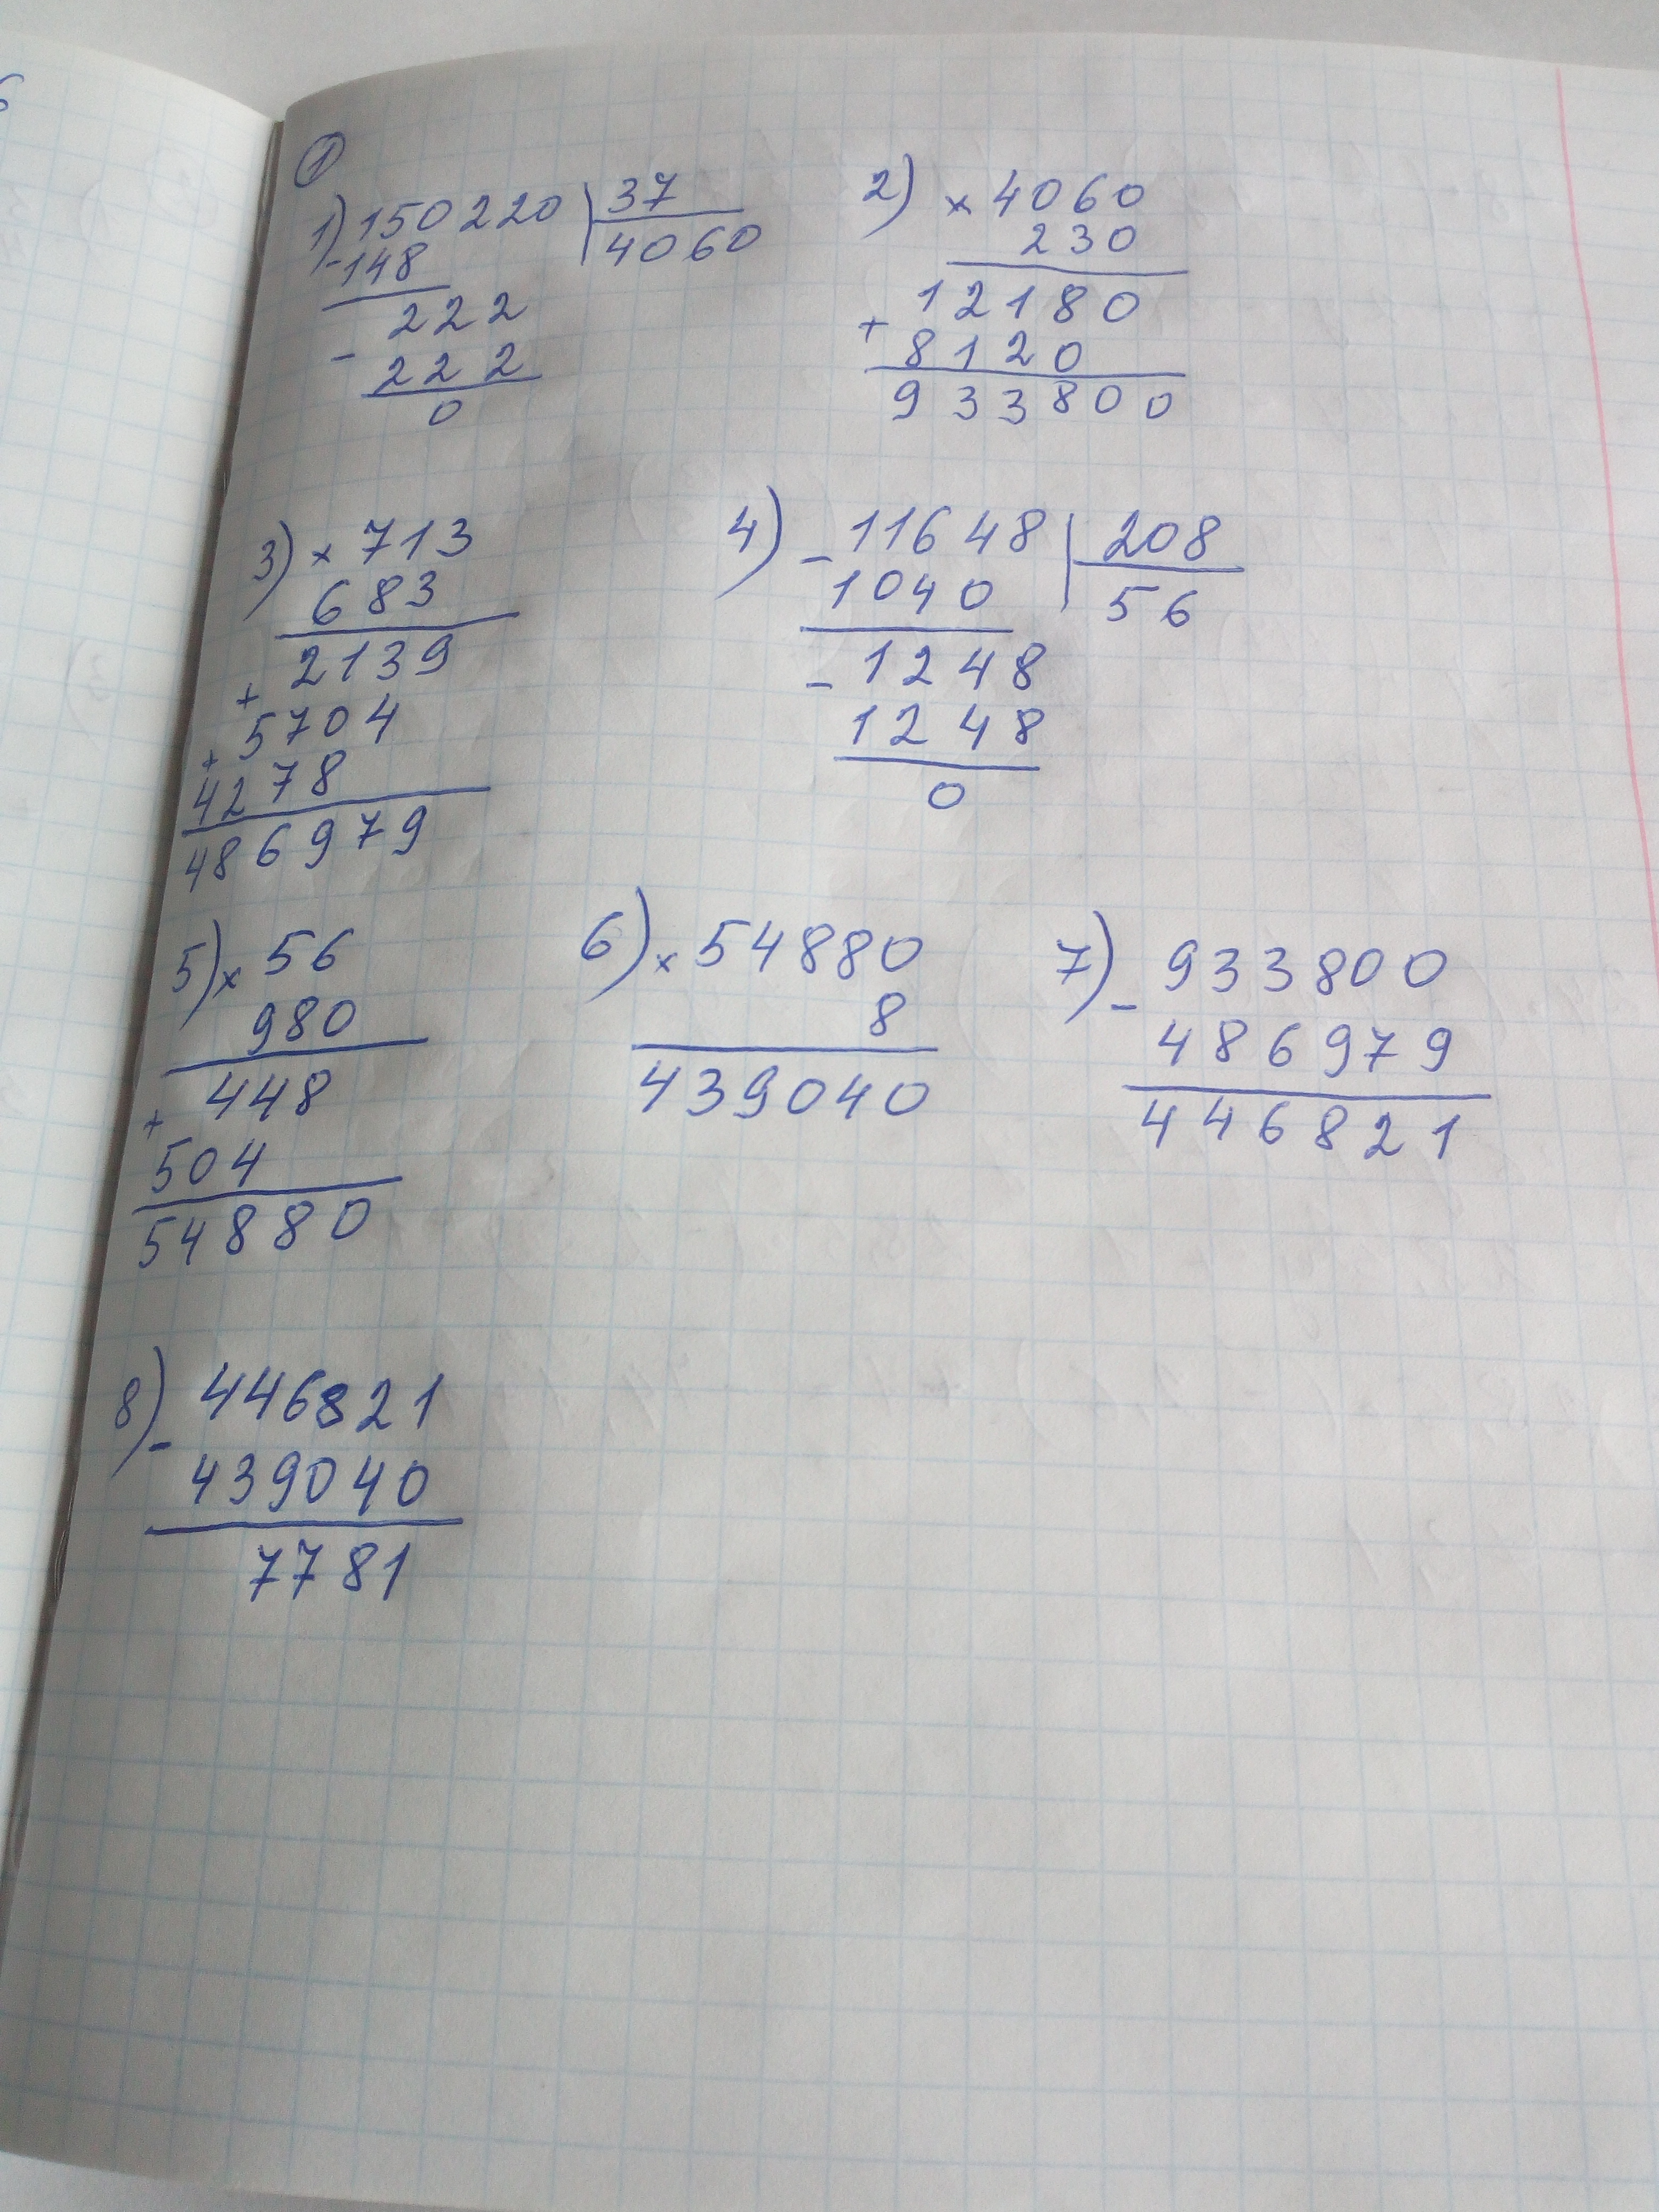 6
1
1) 150220 | 37
- 148 4060
222
- 222
0
2) × 4060
230
12180
+ 8120
933800
3) × 713
683
2139
+ 5704
+ 4278
486979
4) - 11648 | 208
1040 56
- 1248
1248
0
5) × 56
980
448
+ 504
54880
6) × 54880
8
439040
7) - 933800
486979
446821
8) - 446821
439040
7781